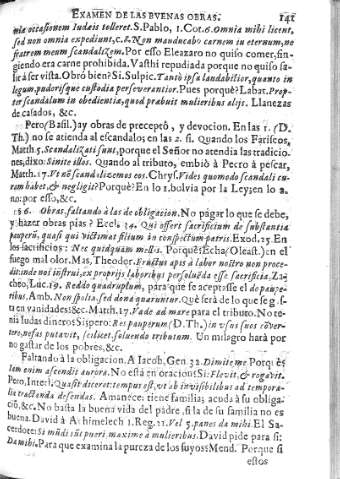 EXAMEN DE LAS BVENAS OBRAS. 141
nia occasionem Iudais tolleret. S. Pablo, 1. Cot. 6. Omnia mihi licent,
sed non omnia expediunt, c. 8. Non manducabo carnem in eternum, ne
fratrem meum scandalizem. Por esso Eleazaro no quiso comer, fin-
giendo era carne prohibida. Vasthi repudiada porque no quiso sa-
lir à ser vista. Obrò bien? Si. Sulpic. Tantò ipsa laudabilior, quanto in
legum, pudorisque custodia perseverantior. Pues porquè? Labat. Prop-
ter scandalum in obedientia, quod prabuit mulieribus alijs. Llanezas
de casados, &c.
Pero (Basil.) ay obras de preceptò, y devocion. En las 1. (D.
Th.) no se atienda al escandalo; en las 2. si. Quando los Fariseos,
Matth. 5. Scandalizati sunt, porque el Señor no atendia las tradicio-
nes, dixo: Sinite illos. Quando al tributo, embiò à Pecro à pescar,
Matth. 17. Vt nõ scandalizemus eos. Chrys. Vides quomodo scandali cu-
ram habet, & negligit? Porquè? En lo 1. bolvia por la Ley; en lo 2.
no: por esso, &c.
186. Obras, faltando à las de obligacion. No pagar lo que se debe,
y hazer obras pias? Eccl. 34. Qui offert sacrificium de substantia
pauperũ, quasi qui victimat filium in conspectu patris. Exod. 25. En
los sacrificios: Nec quidquam mellis. Porquè? Echa (Oleast.) en el
fuego mal olor. Mas, Theodor. Fructus apis à labor nostro non proce-
dit: inde nos instrui, ex proprijs laboribus persoluẽda esse sacrificia. Za-
cheo, Luc. 19. Reddo quadruplum, para que se aceptasse el do paupe-
ribus. Amb. Non spolia, sed dona quaruntur. Què serà de lo que se g.s-
ta en vanidades? &c. Matth. 17. Vade ad mare para el tributo. No te-
nia Iudas dineros? Si; pero: Res pauperum (D. Th.) in vsus suos cõver-
tere, nefas putavit, scilicet. soluendo tributum. Un milagro harà por
no gastar de los pobres, &c.
Faltando à la obligacion. A Iacob, Gen. 32. Dimitte me Porquè?
Iam enim ascendit aurora. No està en oracion? Si: Flevit, & rogavit.
Pero, Interl. Quasi diceret: tempus est, vt ab invisibilibus ad tempora-
lia tractenda descendas. Amanece: tiene familia; acuda à su obliga-
ciõ, &c. No basta la buena vida del padre, si la de su familia no es
buena. David à Achimelech 1. Reg. 21. Vel 5. panes da mihi. El Sa-
cerdote: Si mũdi sũt pueri maxime à mulieribus. David pide para si:
Da mihi. Para que examina la pureza de los suyos? Mend. Porque si
estos